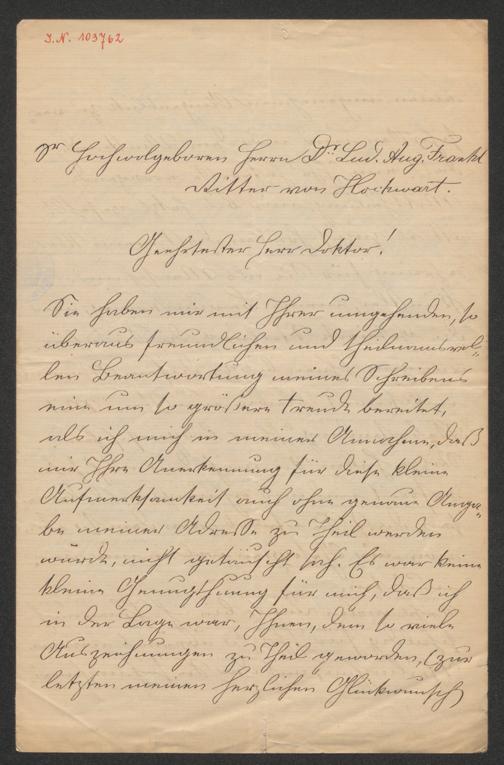 J.N. 103762
Sr Hochwolgeboren Herrn Dr. Lud. Aug. Frankl
Ritter von Hochwart.
Geehrtester Herr Doktor!
Sie haben mir mit Ihrer umgehenden, so
überaus freundlichen und theilnamsvol-
len Beantwortung meines Schreibens
eine um so größere Freude bereitet,
als ich mich in meiner Annahme, daß
mir Ihre Anerkennung für diese kleine
Aufmerksamkeit auch ohne genaue Anga-
be meiner Adresse zu Theil werden
würde, nicht getäuscht sah. Es war keine
kleine Genugthuung für mich, daß ich
in der Lage war, Ihnen, dem so viele
Auszeichnungen zu Theil geworden, (zur
letzten meinen herzlichen Glückwunsch)